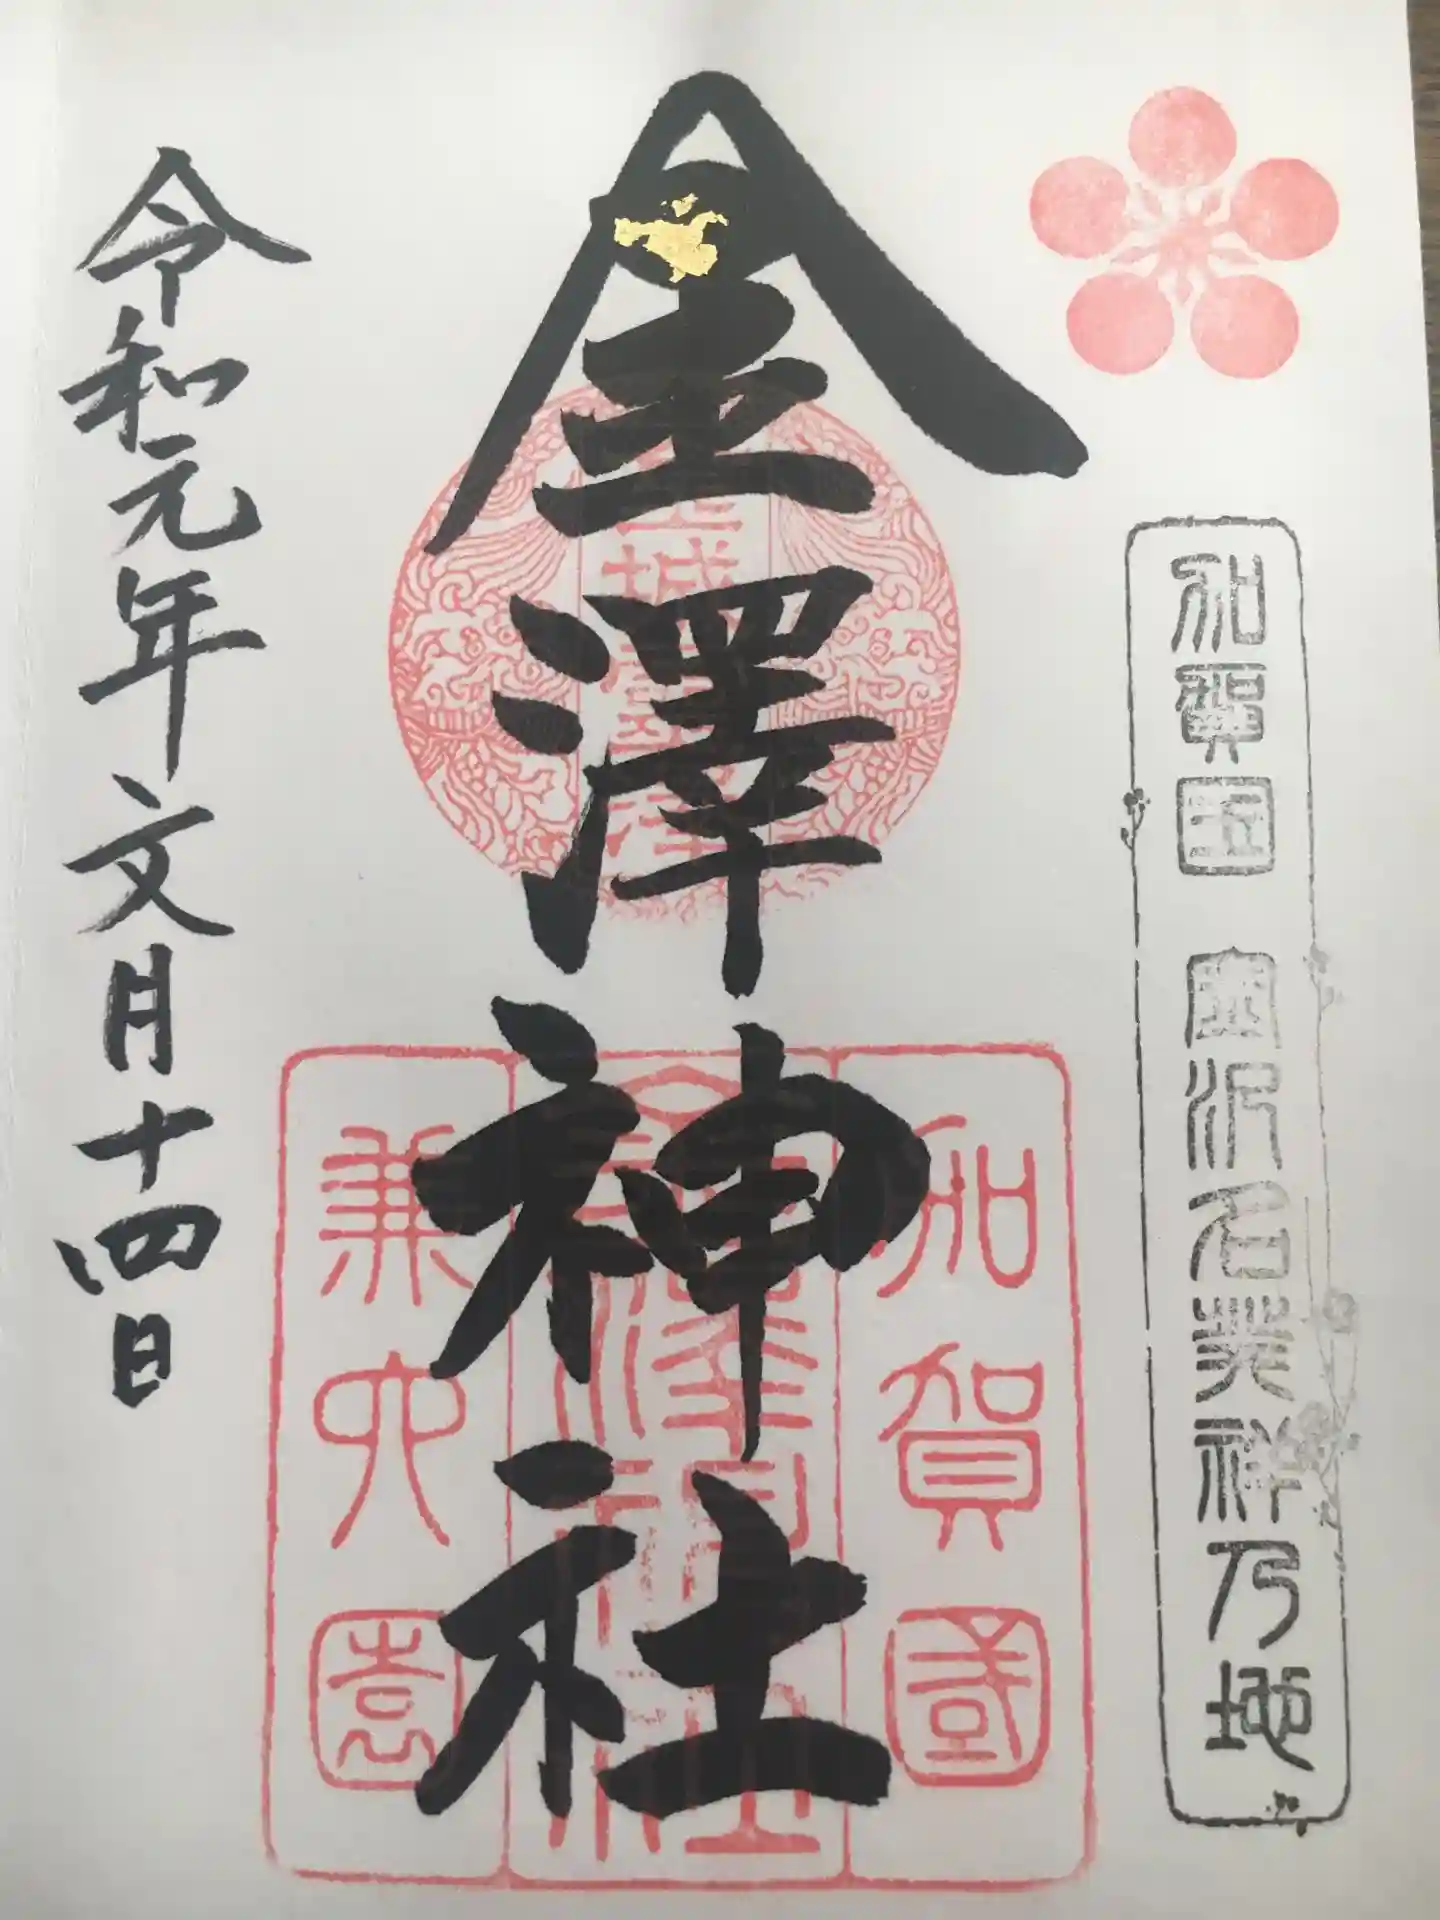 加賀国 金沢名発祥乃地
金澤神社
加賀國
金澤神社
兼六園
令和元年文月十四日